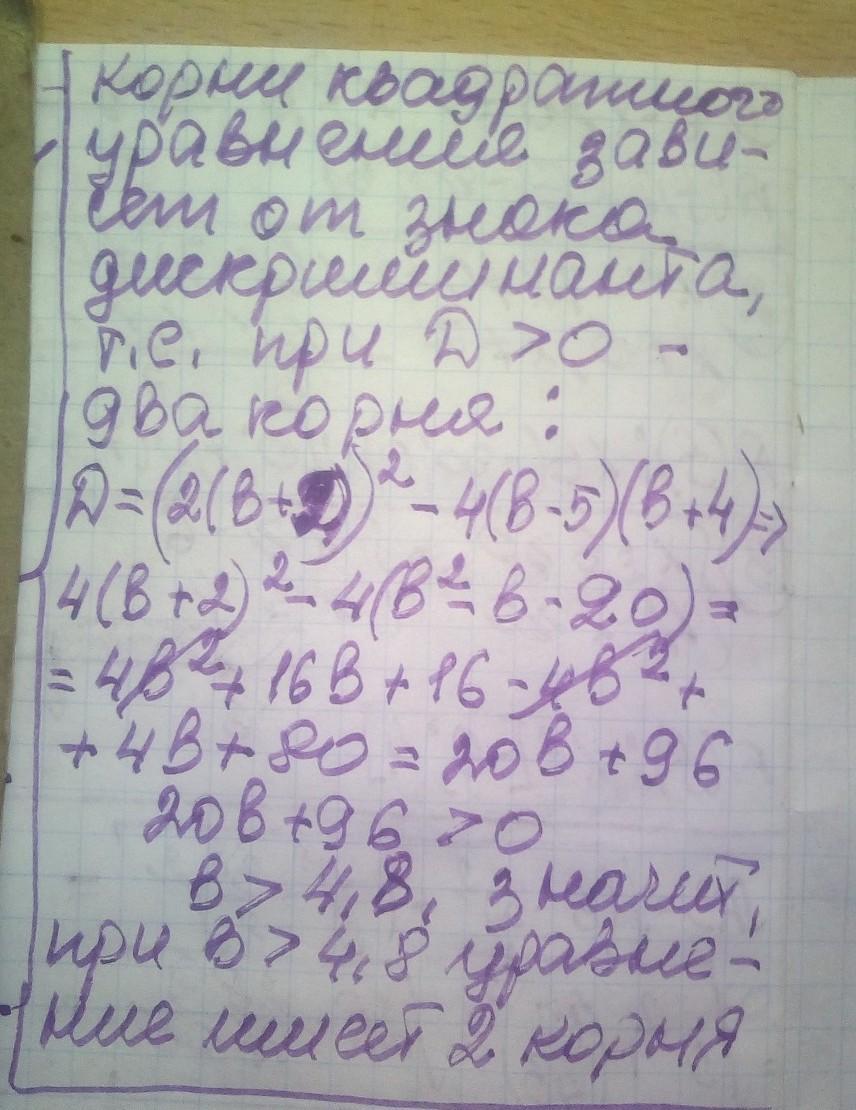 корни квадратного
уравнения зави-
сет от знака
дискриминанта,
т.е. при D > 0 -
два корня :
D = (2(в+2))² - 4(в-5)(в+4) =>
4(в+2)² - 4(в² - в - 20) =
= 4в² + 16в + 16 - 4в² +
+ 4в + 80 = 20в + 96
20в + 96 > 0
в > 4,8, значит,
при в > 4,8 уравне-
ние имеет 2 корня